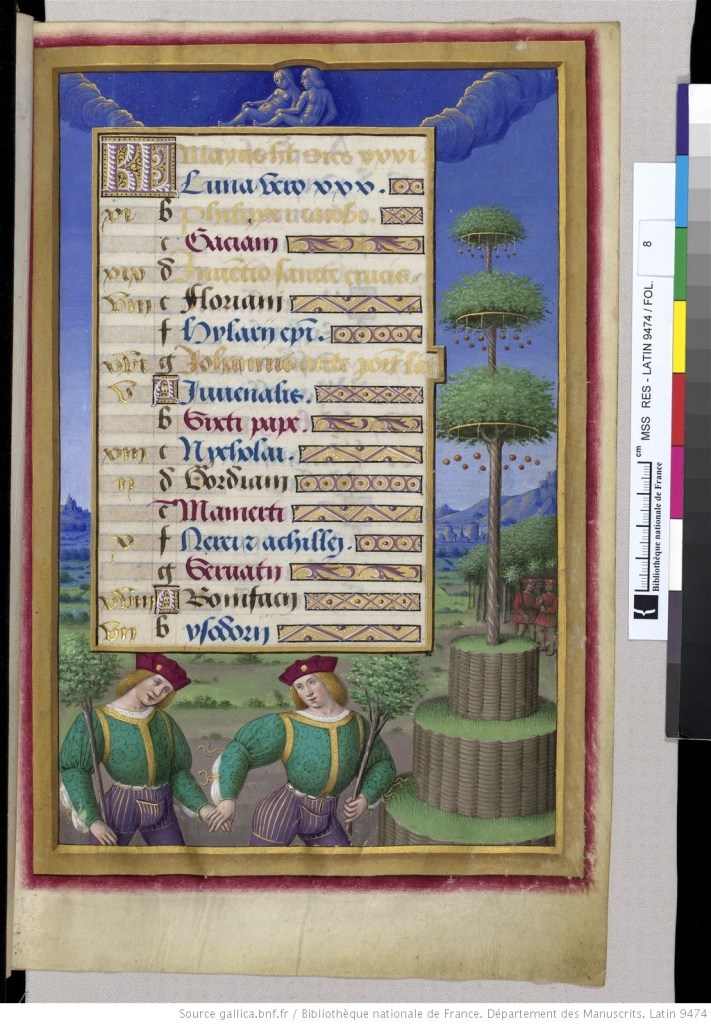 KL Mayus hit dies xxxi.
Luna vero xxx.
xi b Philippi et iacobi.
c Gaciani
xix d Inventio sancte crucis.
viii e Floriani
f Hylarii epi.
xvi g Johannis ante port lat
v A Iuvenalis.
b Sixti pape.
xiii c Nycholai.
ii d Gordiani
e Mamerti
x f Nerei z achillei.
g Servatii
xviii A Bonifacii
vii b ysidorii
cm MSS RES - LATIN 9474 / FOL. 8
Bibliothèque nationale de France
Source gallica.bnf.fr / Bibliothèque nationale de France. Département des Manuscrits. Latin 9474